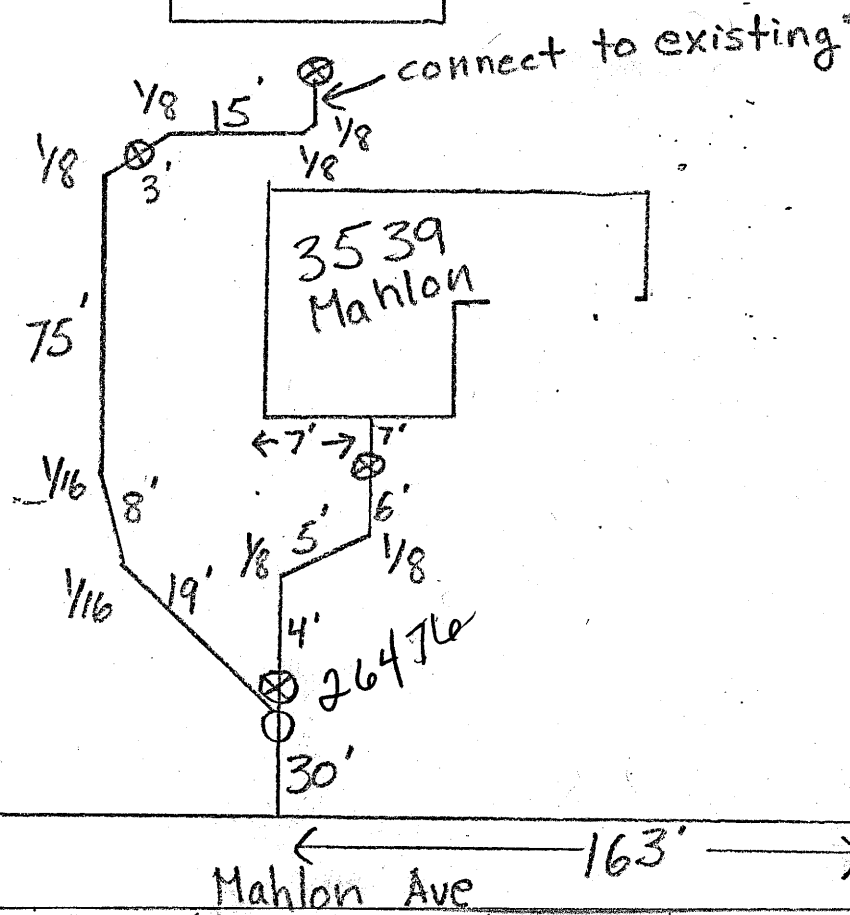 connect to existing
1/8
15'
1/8
1/8
1/8
3'
3539
Mahlon
75'
←7'→
7'
1/16
8'
6'
5'
1/8
1/8
1/16
19'
4'
26476
30'
163'
Mahlon Ave